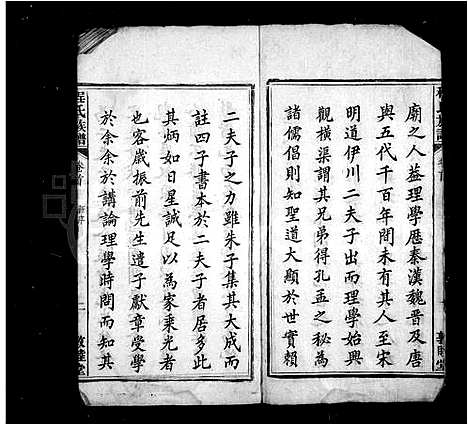 廟之人葢理學歷秦漢魏晉及唐
與五代千百年間未有其人至宋
明道伊川二夫子出而理學始興
觀橫渠謂其兄弟得孔孟之秘為
諸儒倡則知聖道大顯於世實賴
二夫子之力雖朱子集其大成而
註四子書本於二夫子者居多此
其炳如日星誠足以為家乘光者
也客歲振前先生遣子獻章受學
於余余於講論理學時間而知其
程氏族譜
卷首
敦睦堂